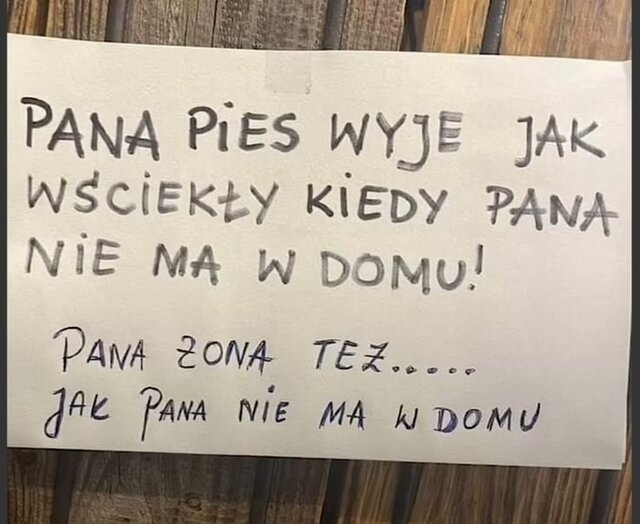 PANA PiES WYJE JAK
WŚCiEKŁY KiEDY PANA
NiE MA W DOMU!
PANA ŻONA TEŻ.....
JAK PANA NiE MA W DOMU